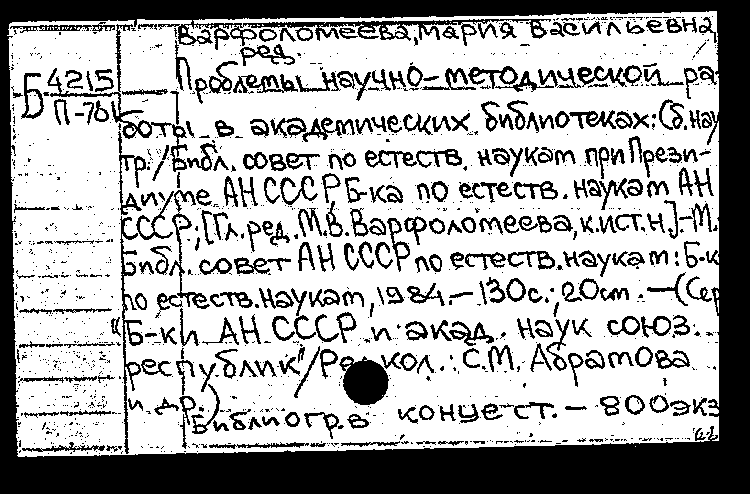 Варфоломеева, Мария Васильевна,
ред.
Б 4215
П-781
Проблемы научно-методической ра-
боты в академических библиотеках: (Сб. нау
тр./Библ. совет по естеств. наукам при Прези-
диуме АН СССР, Б-ка по естеств. наукам АН
СССР; [Гл. ред. М.В. Варфоломеева, к.ист.н.].-М.
Библ. совет АН СССР по естеств. наукам: Б-к
по естеств. наукам, 1984. - 130с.; 20см. - (Сер
"Б-ки АН СССР и акад. наук союз.
республик"/Ред кол.: С.М. Абрамова
и др.)
Библиогр. в конце ст. - 800 экз